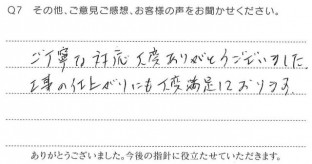 Q7 その他、ご意見ご感想、お客様の声をお聞かせください。
ご丁寧な対応大変ありがとうございました。
工事の仕上がりにも大変満足しております。
ありがとうございました。今後の指針に役立たせていただきます。